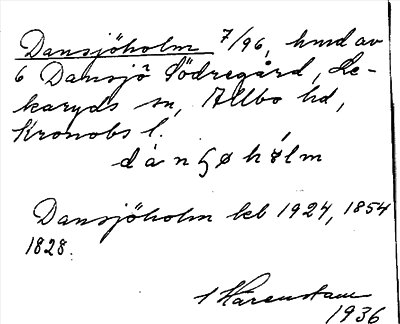 Dansjöholm 7/96, hmd av
6 Dansjö Södregård, Le-
karyds sn, Allbo hd,
Kronobs l.
Dansjöholm keb 1924, 1854
1828.
1936